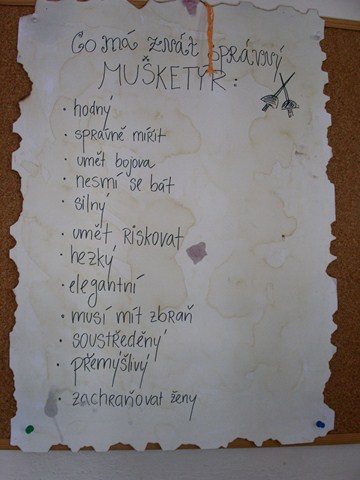 Co má znát správný
MUŠKETÝR:
· hodný
· správně mířit
· umět bojova
· nesmí se bát
· silný
· umět riskovat
· hezký
· elegantní
· musí mít zbraň
· soustředěný
· přemýšlivý
· zachraňovat ženy